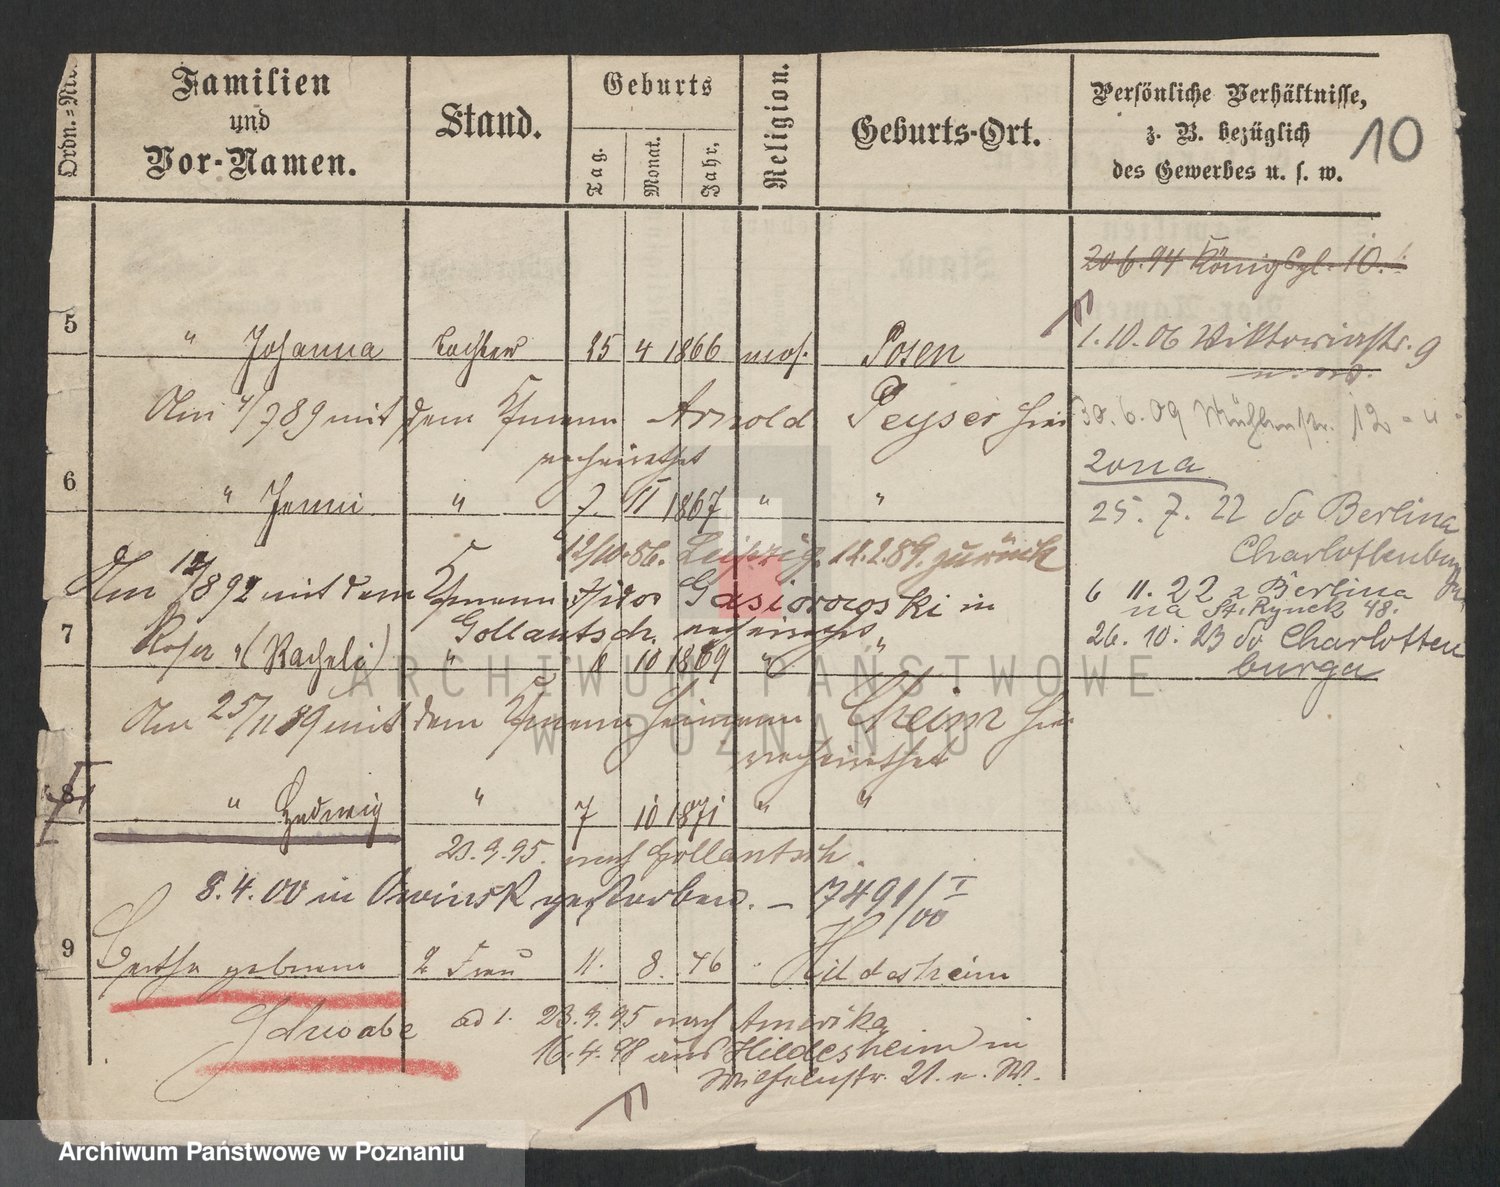 Ordn.=Nr.
Familien
und
Vor-Namen.
Stand.
Geburts
Tag.
Monat.
Jahr.
Religion.
Geburts-Ort.
Persönliche Verhältnisse,
z. B. bezüglich
des Gewerbes u. s. w.
10
20.6.94 Königspl. 10.
5 " Johanna Tochter 25 4 1866 mos. Posen
1.10.06 Viktoriastr. 9
Am 4/7 89 mit dem Kfmann Arnold Peyser hier
verheirathet
30.6.09 Mühlenstr. 12
żona
6 " Jenni " 7. 11 1867 " "
25. 7. 22 do Berlina
Charlottenburg
12/10.86. Leipzig. 14.2.89. zurück
Am 12/8 92 mit dem Kfmann Isidor Gasiorowski in
Gollantsch. verheirathet
6 11. 22 z Berlina
na St. Rynek 48.
7 Rosa "(Rachel) " 8 10 1869 " "
26. 10. 23 do Charlotten
burga
Am 25/11 89 mit dem Kfmann Heimann Cheim hier
verheirathet
8 " Hedwig " 7 10 1871 " "
23.9.95. nach Gollantsch.
8.4.00 in Owinsk gestorben. – 7491/00 I
9 Bertha geborene 2. Frau 11. 8. 46 " Hildesheim
Schwabe
ad 1. 23.9.95 nach Amerika
16.4.98 aus Hildesheim in
Wilhelmstr. 21. n. W.
ARCHIWUM PAŃSTWOWE
W POZNANIU
Archiwum Państwowe w Poznaniu